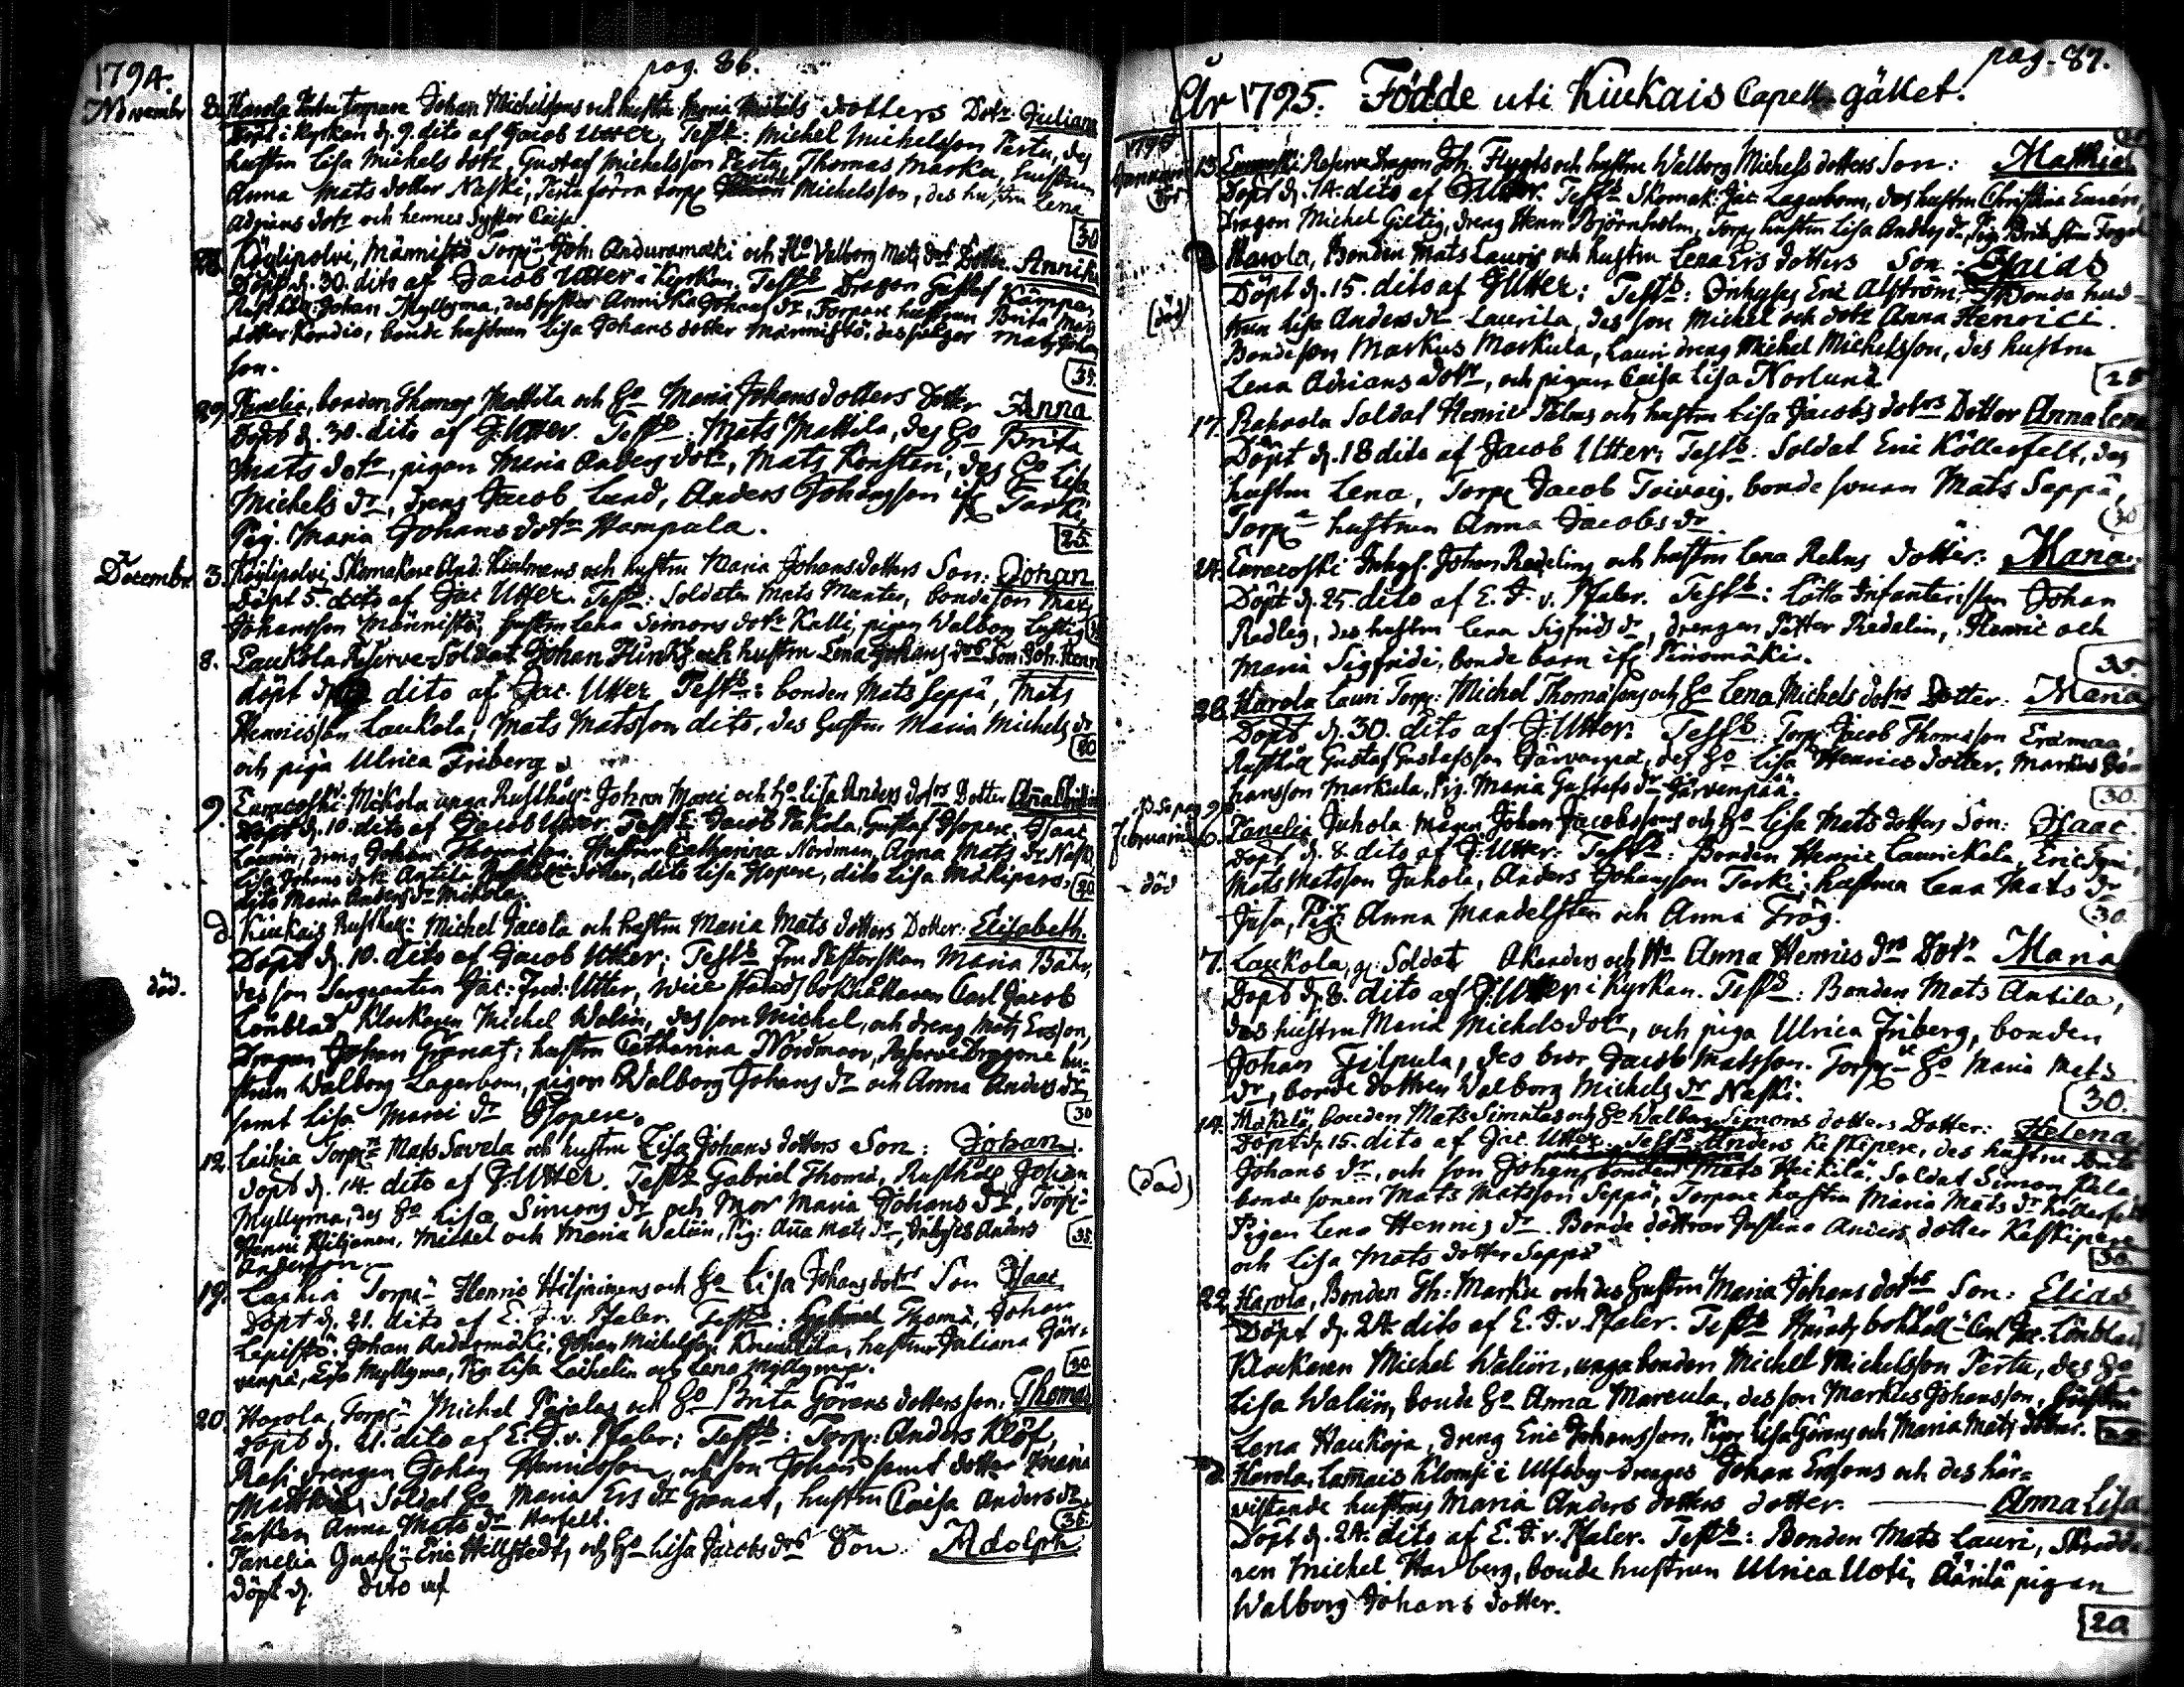 1794.
pag. 86.
Novembr. 8. Harola torpare Johan Michelssons och hustru Maria Michels dotters Dotr Juliana
Döpt i kyrkan d. 9. dito af Jacob Utter. Testb: Michel Michelsson Perttu, des
hustru Lisa Michels dotr, Gustaf Michelsson Perttu, Thomas Marku, hustrun
Anna Mats dotter Naski, torp Michelsson, des hustru Lena
Adrians dotr och hennes syster Caisa.
30
28. Köylipolvi, Männistö Torpr Joh. Anduramäki och Ho Valborg Mats dotr Dotter. Annika
Döpt d. 30. dito af Jacob Utter i kyrkan. Testb Dragon Gustaf Kämpe,
Rusthåll: Johan Myllyma, des syster Annika Johans dr, Torpare hustrun Brita Mats
dotter Kondio, bonde hustrun Lisa Johans dotter Männistö, des Mats Johan
son.
35.
29. Panelia, bonden Thomas Mattila och Ho Maria Johans dotters Dotter Anna
Döpt d. 30. dito af J. Utter. Testb: Mats Mattila, des Ho Brita
Mats dotr, pigan Maria Anders dotr, Mats Konsten, des Ho Lisa
Michels dr, dreng Jacob Lund, Anders Johansson ifr Tarki,
Pig. Maria Johans dotr Hampula.
25.
Decembr. 3. Köylipolvi, Skomakare And: Hialmans och hustru Maria Johans dotters Son: Johan
Döpt 5. dito af Jac Utter. Testb: Soldaten Mats Manter, bondeson Mats
Johansson Männistö, hustru Lena Simons dotr Kalli, pigan Walborg
8. Laukola Reserve Soldat Johan Flinks och hustru Lena Johans dotrs Son: Joh. Henr
döpt d. dito af Jac. Utter Testb: bonden Mats Seppä, Mats
Henricsson Laukola, Mats Matsson dito, des hustru Maria Michels dr
och piga Ulrica Friberg.
30
9. Euracoski Mikola unga Rusthåll: Johan Marci och Ho Lisa Anders dotrs Dotter Anna Christin
Döpt d. 10. dito af Jacob Utter. Testb Jacob Pakola, Gustaf Isopere, Isaac
Laurin, dreng Johan Thomasson. Hustrun Catharina Nordman, Anna Mats dr Naski
Lisa Johans dotr Antila dotter, dito Lisa Isopere, dito Lisa Mäkipere,
dito Maria Anders dr Mikola.
20.
d Kiukais Rusthåll: Michel Jacola och hustru Maria Mats dotters Dotter: Elisabeth.
Döpt d. 10. dito af Jacob Utter; Testb Fru Pastorskan Maria Bähr,
död.
des son Sergeanten Jac: Fred: Utter, wice Härads bokhållaren Carl Jacob
Lönblad, Klockaren Michel Walin, des son Michel, och dreng Mats Ersson,
Dragon Johan Granat; hustru Catharina Nordman, Reserve Dragone hu-
strun Walborg Lagerbom, pigan Walborg Johans dr och Anna Anders dr,
samt Lisa Marci dr Isopere.
30
12. Laihia Torprn Mats Savela och hustru Lisa Johans dotters Son: Johan.
döpt d. 14. dito af J: Utter. Testb Gabriel Thoma, Rusthåll Johan
Myllyma, des Ho Lisa Simons dr och Mor Maria Johans dr, Torpr
Henric Hiljanen, Michel och Maria Walin, Pig: Anna Mats dr, Inhyses Anders
Andersson.
35.
19. Laihia Torpr Henric Hiljaisens och Ho Lisa Johans dotrs Son Isaac
Döpt d. 21. dito af E. J. v. Pfaler. Testb: Gabriel Thoma, Johan
Lepistö. Johan Anduramäki; Johan Michelsson Knuutila, hustrur Juliana Jär-
venpä, Lisa Myllyma, Pig. Lisa Lachelin och Lena Myllyma.
30
20. Harola, Torpr Michel Pajalas och Ho Brita Görans dotters son: Thomas
döpt d. 21. dito af E. J. v. Pfaler; Testb: Torp: Anders Klöf,
Rasi drengen Johan Henricsson, och son Johan samt dotter Maria
Matthia, Soldat Ho Maria Ers dr Granat, hustru Caisa Anders dr,
Enkan Anna Mats dr Harfelt.
35.
Panelia Eric Hellstedts och Ho Lisa Jacobs drs Son Adolph
döpt d. dito af
pag. 87.
År 1795. Födde uti Kiukais Capell gället.
1795
Januarii 13. Euracoski Reserve Dragon Joh. Flygts och hustru Walborg Michels dotters Son: Matthias
Döpt d. 14. dito af J Utter. Testb Skomak: Jac. Lagerbom, des hustru Christina
Dragon Michel Giltig, dreng Henr Björnholm, Torp hustru Lisa Anders dr, Pig. Brita Stina
Harola, Bonden Mats Lauris och hustru Lena Ers dotters Son: Esaias
Döpt d. 15. dito af J Utter: Testb: Inhyses Eric Alström, Bonde hus-
(död)
trun Lisa Anders dr Laurila, des son Michel och dotr Anna Henrici.
Bondeson Markus Markula, Lauri dreng Michel Michelsson, des hustru
Lena Adrians dotr, och pigan Caisa Lisa Norlund
17. Rahvola Soldat Henric Palms och hustru Lisa Jacobs dotrs Dotter Anna Lena
Döpt d. 18 dito af Jacob Utter; Testb: Soldat Eric Köllerfelt, des
hustru Lena, Torp Jacob Toivois, bonde sonen Mats Seppä,
Torp hustrun Anna Jacobs dr.
30
24. Euracoski Inhys. Johan Redelins och hustru Lena Relms dotter: Maria.
Döpt d. 25. dito af E. J. v. Pfaler. Testb: Lätta Infanteristen Johan
Redlig, des hustru Lena Sigfrids dr, drengen Petter Redelin, Henric och
Maria Sigfridi, bonde barn ifr Pinomäki.
35.
28. Harola Lauri Torp: Michel Thomassons och Ho Lena Michels dotrs Dotter: Maria
Döpt d. 30. dito af J. Utter. Testb Torp Jacob Thomasson Erämaa,
Rusthåll Gustaf Gustafsson Järvenpä, des Ho Lisa Henrics dotter, Markus Jo-
hansson Markula, Pig. Maria Gustafs dr Järvenpää.
30.
Februarii 6. Panelia Juhola mågen Johan Jacobssons och Ho Lisa Mats dotters Son: Isaac.
döpt d. 8. dito af J: Utter: Testb: Bonden Henric Laurickala, Eric
död
Mats Matsson Juhola, Anders Johansson Tarki; hustrun Lena Mats dr
Pig: Anna Mandelsten och Anna Frög.
30.
7. Laukola, Soldat Akanders och Ho Anna Henrics drs Dotr Maria
Döpt d. 8. dito af J: Utter i kyrkan. Testb: Bonden Mats Antila,
des hustru Maria Michelsdotr, och piga Ulrica Friberg, bonden
Johan Filpula, des bror Jacob Matsson. Torpr Ho Maria Mats
dr, bonde dottren Walborg Michels dr Naski.
30.
14. Mäkelä, bonden Mats Simulas och Ho Walborg Simons dotters Dotter: Helena
Döpt d. 15. dito af Jac. Utter. Testb: Anders Keskipere, des hustru Brita
(död)
Johans dr, och son Johan, bonden Mats Heikilä, Soldat Simon
bonde sonen Mats Matsson Seppä, Torpare hustru Maria Mats dr Köllerfelt
Pigan Lena Henrics dr. Bonde döttrar Justina Anders dotter Keskipere
och Lisa Mats dotter Seppä
30.
22. Harola, Bonden Th: Marku och des hustru Maria Johans dotrs Son: Elias
Döpt d. 24. dito af E. J. v. Pfaler. Testb Härads bokhåll: Carl Jac. Lönblad
Klockaren Michel Walin, unga bonden Michel Michelsson Perttu, des Ho
Lisa Walin, bonde Ho Anna Marcula, des son Markus Johansson,
Lena Haukoja, dreng Eric Johansson, Pigor Lisa Görans och Maria Mats döttrar.
d. Harola, Lammais Klomsi i Ulfsby drenges Johan Ersons och des här-
vistande hustrus Maria Anders dotters dotter. Anna Lisa
Döpt d. 24. dito af E. J. v. Pfaler. Testb: Bonden Mats Lauri, Skredda-
ren Michel Harberg, bonde hustrun Ulrica Uoti, Ääritä pigan
Walborg Johans dotter.
20